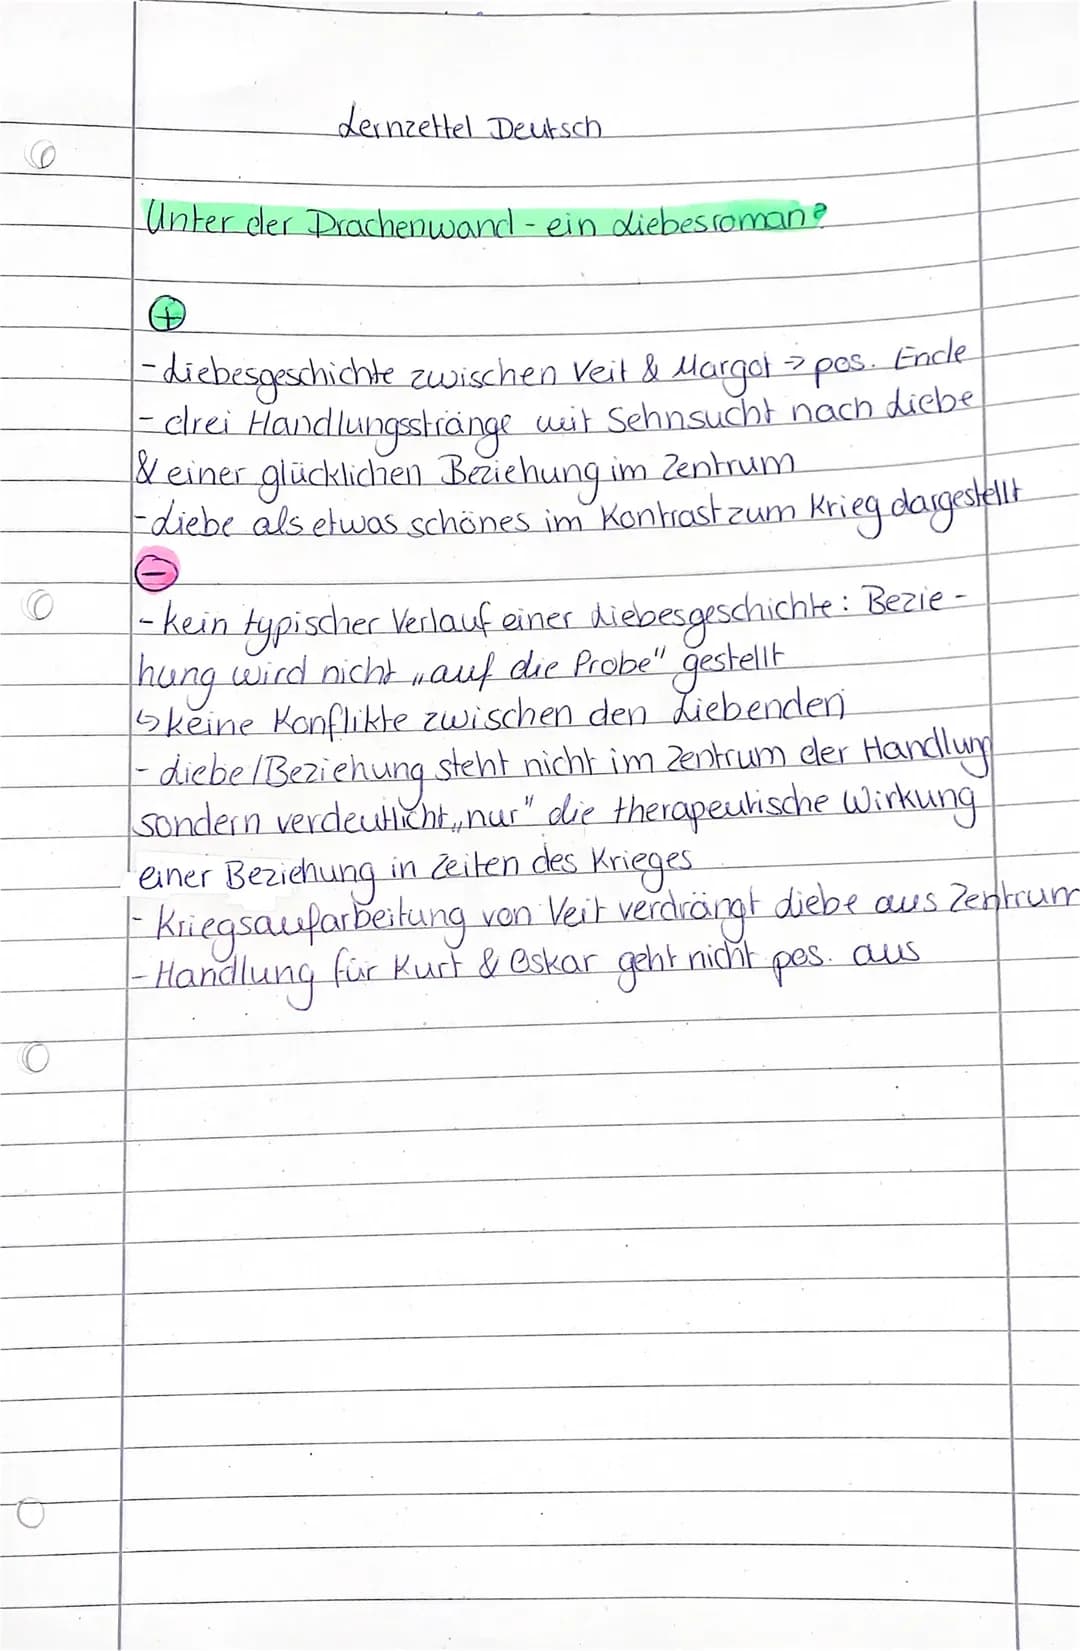 Lernzettel Deutsch
Unter der Drachenwand - ein Liebesroman?
+
- Liebesgeschichte zwischen Veit & Margot → pos. Ende
- drei Handlungsstränge mit Sehnsucht nach Liebe
& einer glücklichen Beziehung im Zentrum
- Liebe als etwas schönes im Kontrast zum Krieg dargestellt
-
- kein typischer Verlauf einer Liebesgeschichte: Bezie-
hung wird nicht „auf die Probe" gestellt
↳ keine Konflikte zwischen den Liebenden
- Liebe/Beziehung steht nicht im Zentrum der Handlung
sondern verdeutlicht „nur" die therapeutische Wirkung
einer Beziehung in Zeiten des Krieges
- Kriegsaufarbeitung von Veit verdrängt Liebe aus Zentrum
- Handlung für Kurt & Oskar geht nicht pos. aus